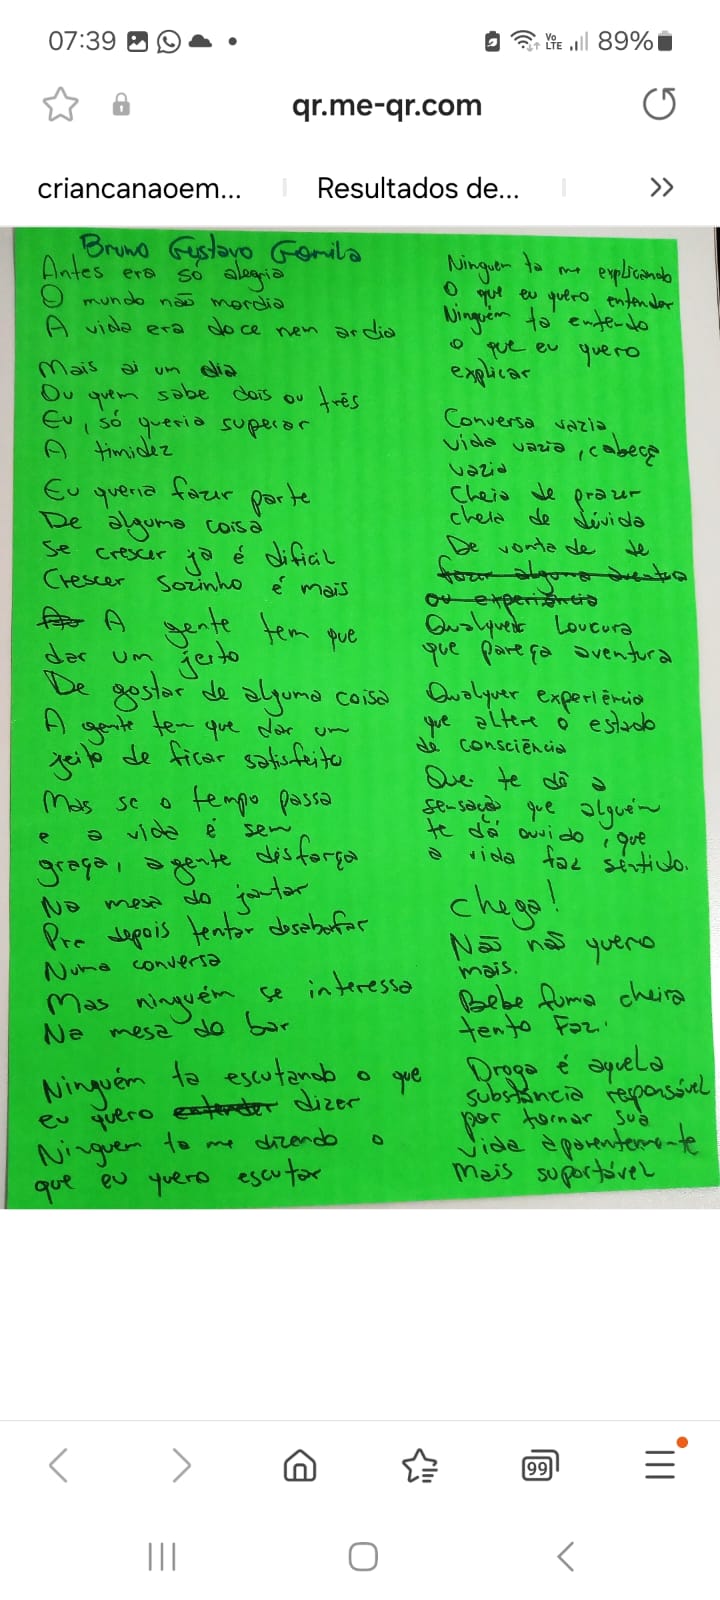 07:39
Vo
LTE
89%
qr.me-qr.com
criancanaoem...
Resultados de...
Bruno Gustavo Gomila
Antes era só alegria
O mundo não mordia
A vida era doce nem ardia
Mais ai um dia
Ou quem sabe dois ou três
Eu, só queria superar
A timidez
Eu queria fazer parte
De alguma coisa
Se crescer ja é dificil
Crescer Sozinho é mais
A gente tem que
dar um jeito
De gostar de alguma coisa
A gente ten que dar um
jeito de ficar satisfeito
Mas se o tempo passa
e a vida é sem
graça, a gente disfarça
Na mesa do jantar
Pra depois tentar desabafar
Numa conversa
Mas ninguém se interessa
Na mesa do bar
Ninguém ta escutando o que
eu quero entender dizer
Ninguem ta me dizendo o
que eu quero escutar
Ninguem ta me explicando
O que eu quero entender
Ninguém ta entendo
o que eu quero
explicar
Conversa vazia
vida vazia, cabeça
vazia
Cheia de prazer
cheia de dúvida
De vontade de
fazer alguma aventura
ou experiência
Qualquer Loucura
que pareça aventura
Qualquer experiência
que altere o estado
de consciência
Que te dê a
sensação que alguén
te dá ouvido, que
a vida faz sentido.
chega!
Não não quero
mais.
Bebe fuma cheira
tanto Faz.
Droga é aquela
substância responsável
por tornar sua
vida aparentemente
mais suportável
99